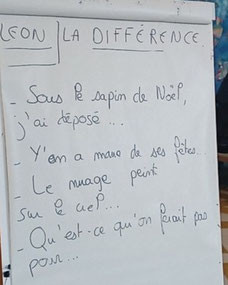 LEON | LA DIFFÉRENCE
- Sous le sapin de Noël,
j'ai déposé ...
- Y'en a marre de ses fêtes...
- Le nuage peint
sur le ciel...
- Qu'est-ce qu'on ferait pas
pour...